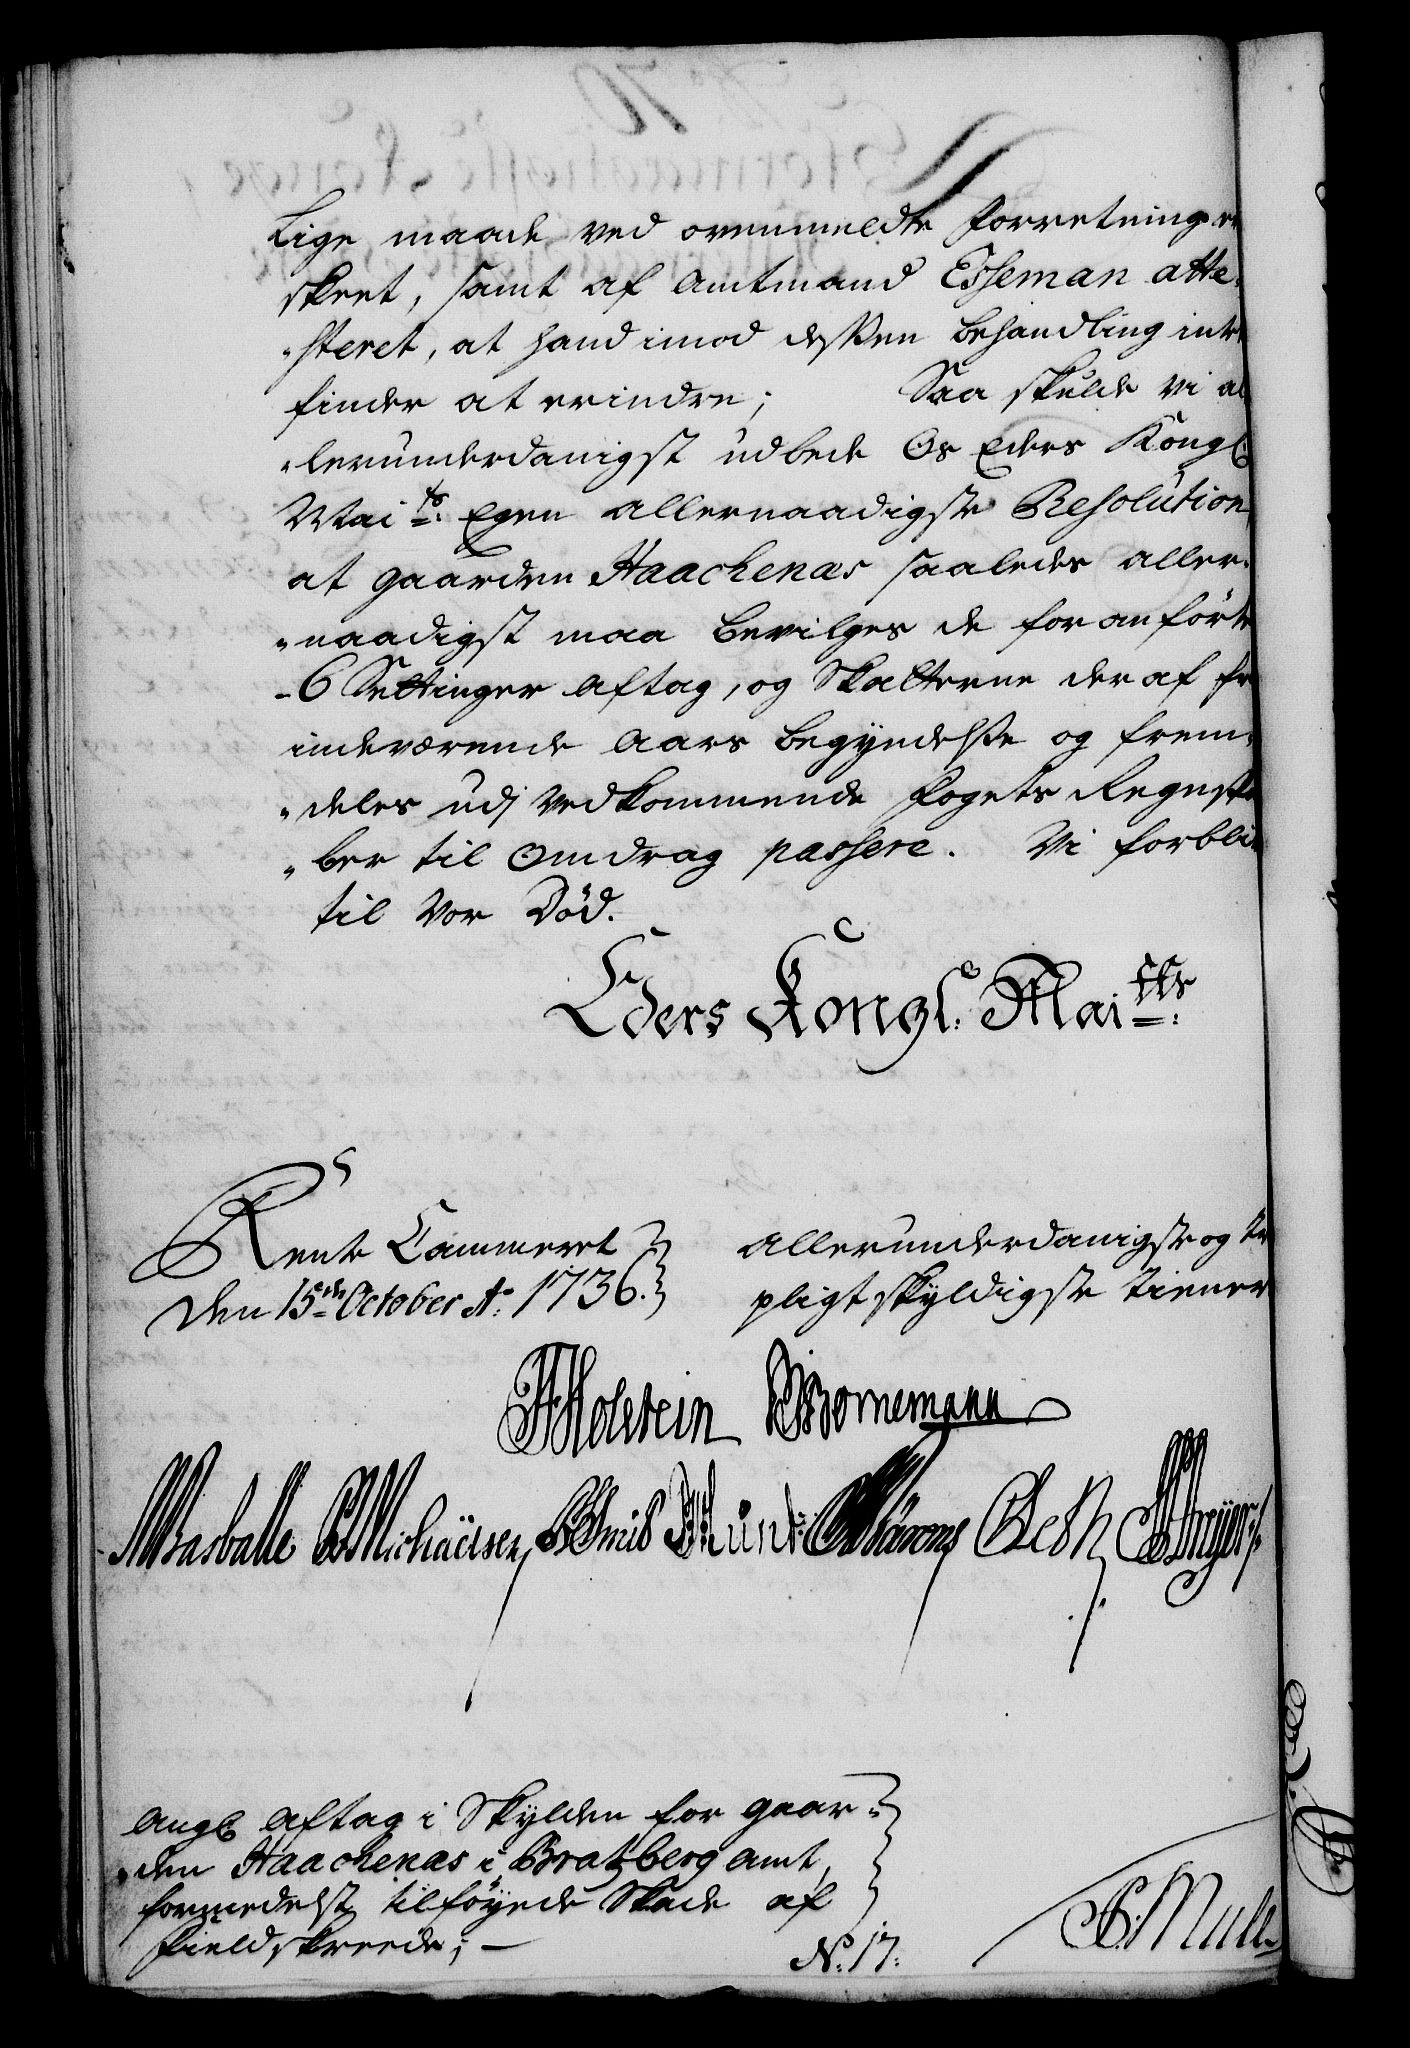 Lige maade ved ovenmeldte forretning er
skeet, samt af Amtmand Esseman atte-
-steret, at hand imod dessen behandling intet
finder at erindre; Saa skulde vi al-
-lerunderdanigst udbede Os Eders Kongl.
Mai.ts Egen allernaadigste Resolution,
at gaarden Haachenæs saaledes aller-
-naadigst maa bevilges de foranførte
6 Settinger aftag, og Skatterne deraf fra
indeværende Aars begyndelse og frem-
-deles udj Vedkommende Fogets Regnska-
-ber til Omdrag passere. Vi forbliver
til Vor Död.
Eders Kongl. Mai.tts
Rente Cammeret
den 15de October Ao. 1736.
allerunderdanigste og tro
pligtskyldigste tiener
Holstein Bornemann
Basballe Michaelsen Smit
angl. aftag i Skylden for gaar-
-den Haachenæs i Bratzberg amt,
formedelst tilföyede Skade af
Fieldskreede;
No. 17.